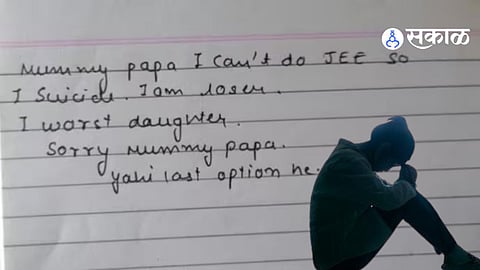 सकाळ
mummy papa I can't do JEE so
I suicide. I am loser.
I worst daughter.
Sorry mummy papa.
yahi last option he.